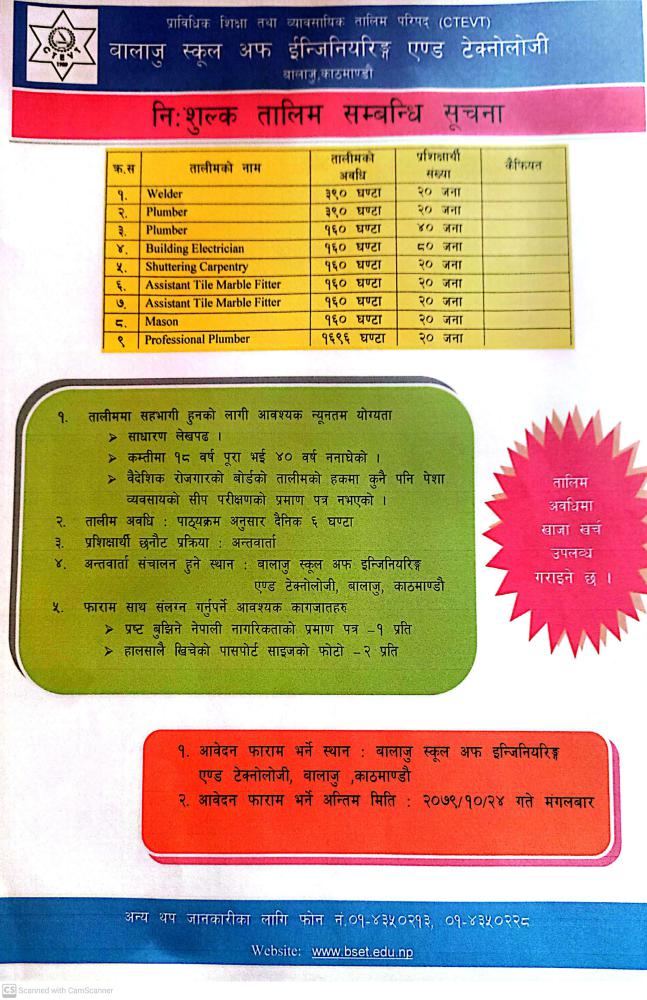 प्राविधिक शिक्षा तथा व्यावसायिक तालिम परिषद (CTEVT)
वालाजु स्कूल अफ ईन्जिनियरिङ्ग एण्ड टेक्नोलोजी
बालाजु,काठमाण्डौ
CTEVT
1989
नि:शुल्क तालिम सम्बन्धि सूचना
क्र.स तालीमको नाम तालीमको अवधि प्रशिक्षार्थी संख्या कैफियत
१. Welder ३९० घण्टा २० जना
२. Plumber ३९० घण्टा २० जना
३. Plumber १६० घण्टा ४० जना
४. Building Electrician १६० घण्टा ८० जना
५. Shuttering Carpentry १६० घण्टा २० जना
६. Assistant Tile Marble Fitter १६० घण्टा २० जना
७. Assistant Tile Marble Fitter १६० घण्टा २० जना
८. Mason १६० घण्टा २० जना
९ Professional Plumber १६९६ घण्टा २० जना
१. तालीममा सहभागी हुनको लागी आवश्यक न्यूनतम योग्यता
➢ साधारण लेखपढ ।
➢ कम्तीमा १८ वर्ष पूरा भई ४० वर्ष ननाघेको ।
➢ वैदेशिक रोजगारको बोर्डको तालीमको हकमा कुनै पनि पेशा
व्यवसायको सीप परीक्षणको प्रमाण पत्र नभएको ।
२. तालीम अवधि : पाठ्यक्रम अनुसार दैनिक ६ घण्टा
३. प्रशिक्षार्थी छनौट प्रक्रिया : अन्तवार्ता
४. अन्तवार्ता संचालन हुने स्थान : बालाजु स्कूल अफ इन्जिनियरिङ्ग
एण्ड टेक्नोलोजी, बालाजु, काठमाण्डौ
५. फाराम साथ संलग्न गर्नुपर्ने आवश्यक कागजातहरु
➢ प्रष्ट बुझिने नेपाली नागरिकताको प्रमाण पत्र –१ प्रति
➢ हालसालै खिचेको पासपोर्ट साइजको फोटो –२ प्रति
तालिम
अवधिमा
खाजा खर्च
उपलब्ध
गराइने छ ।
१. आवेदन फाराम भर्ने स्थान : बालाजु स्कूल अफ इन्जिनियरिङ्ग
एण्ड टेक्नोलोजी, बालाजु ,काठमाण्डौ
२. आवेदन फाराम भर्ने अन्तिम मिति : २०७९/१०/२४ गते मंगलबार
अन्य थप जानकारीका लागि फोन नं.०१-४३५०२१३, ०१-४३५०२२८
Website: www.bset.edu.np
CS Scanned with CamScanner